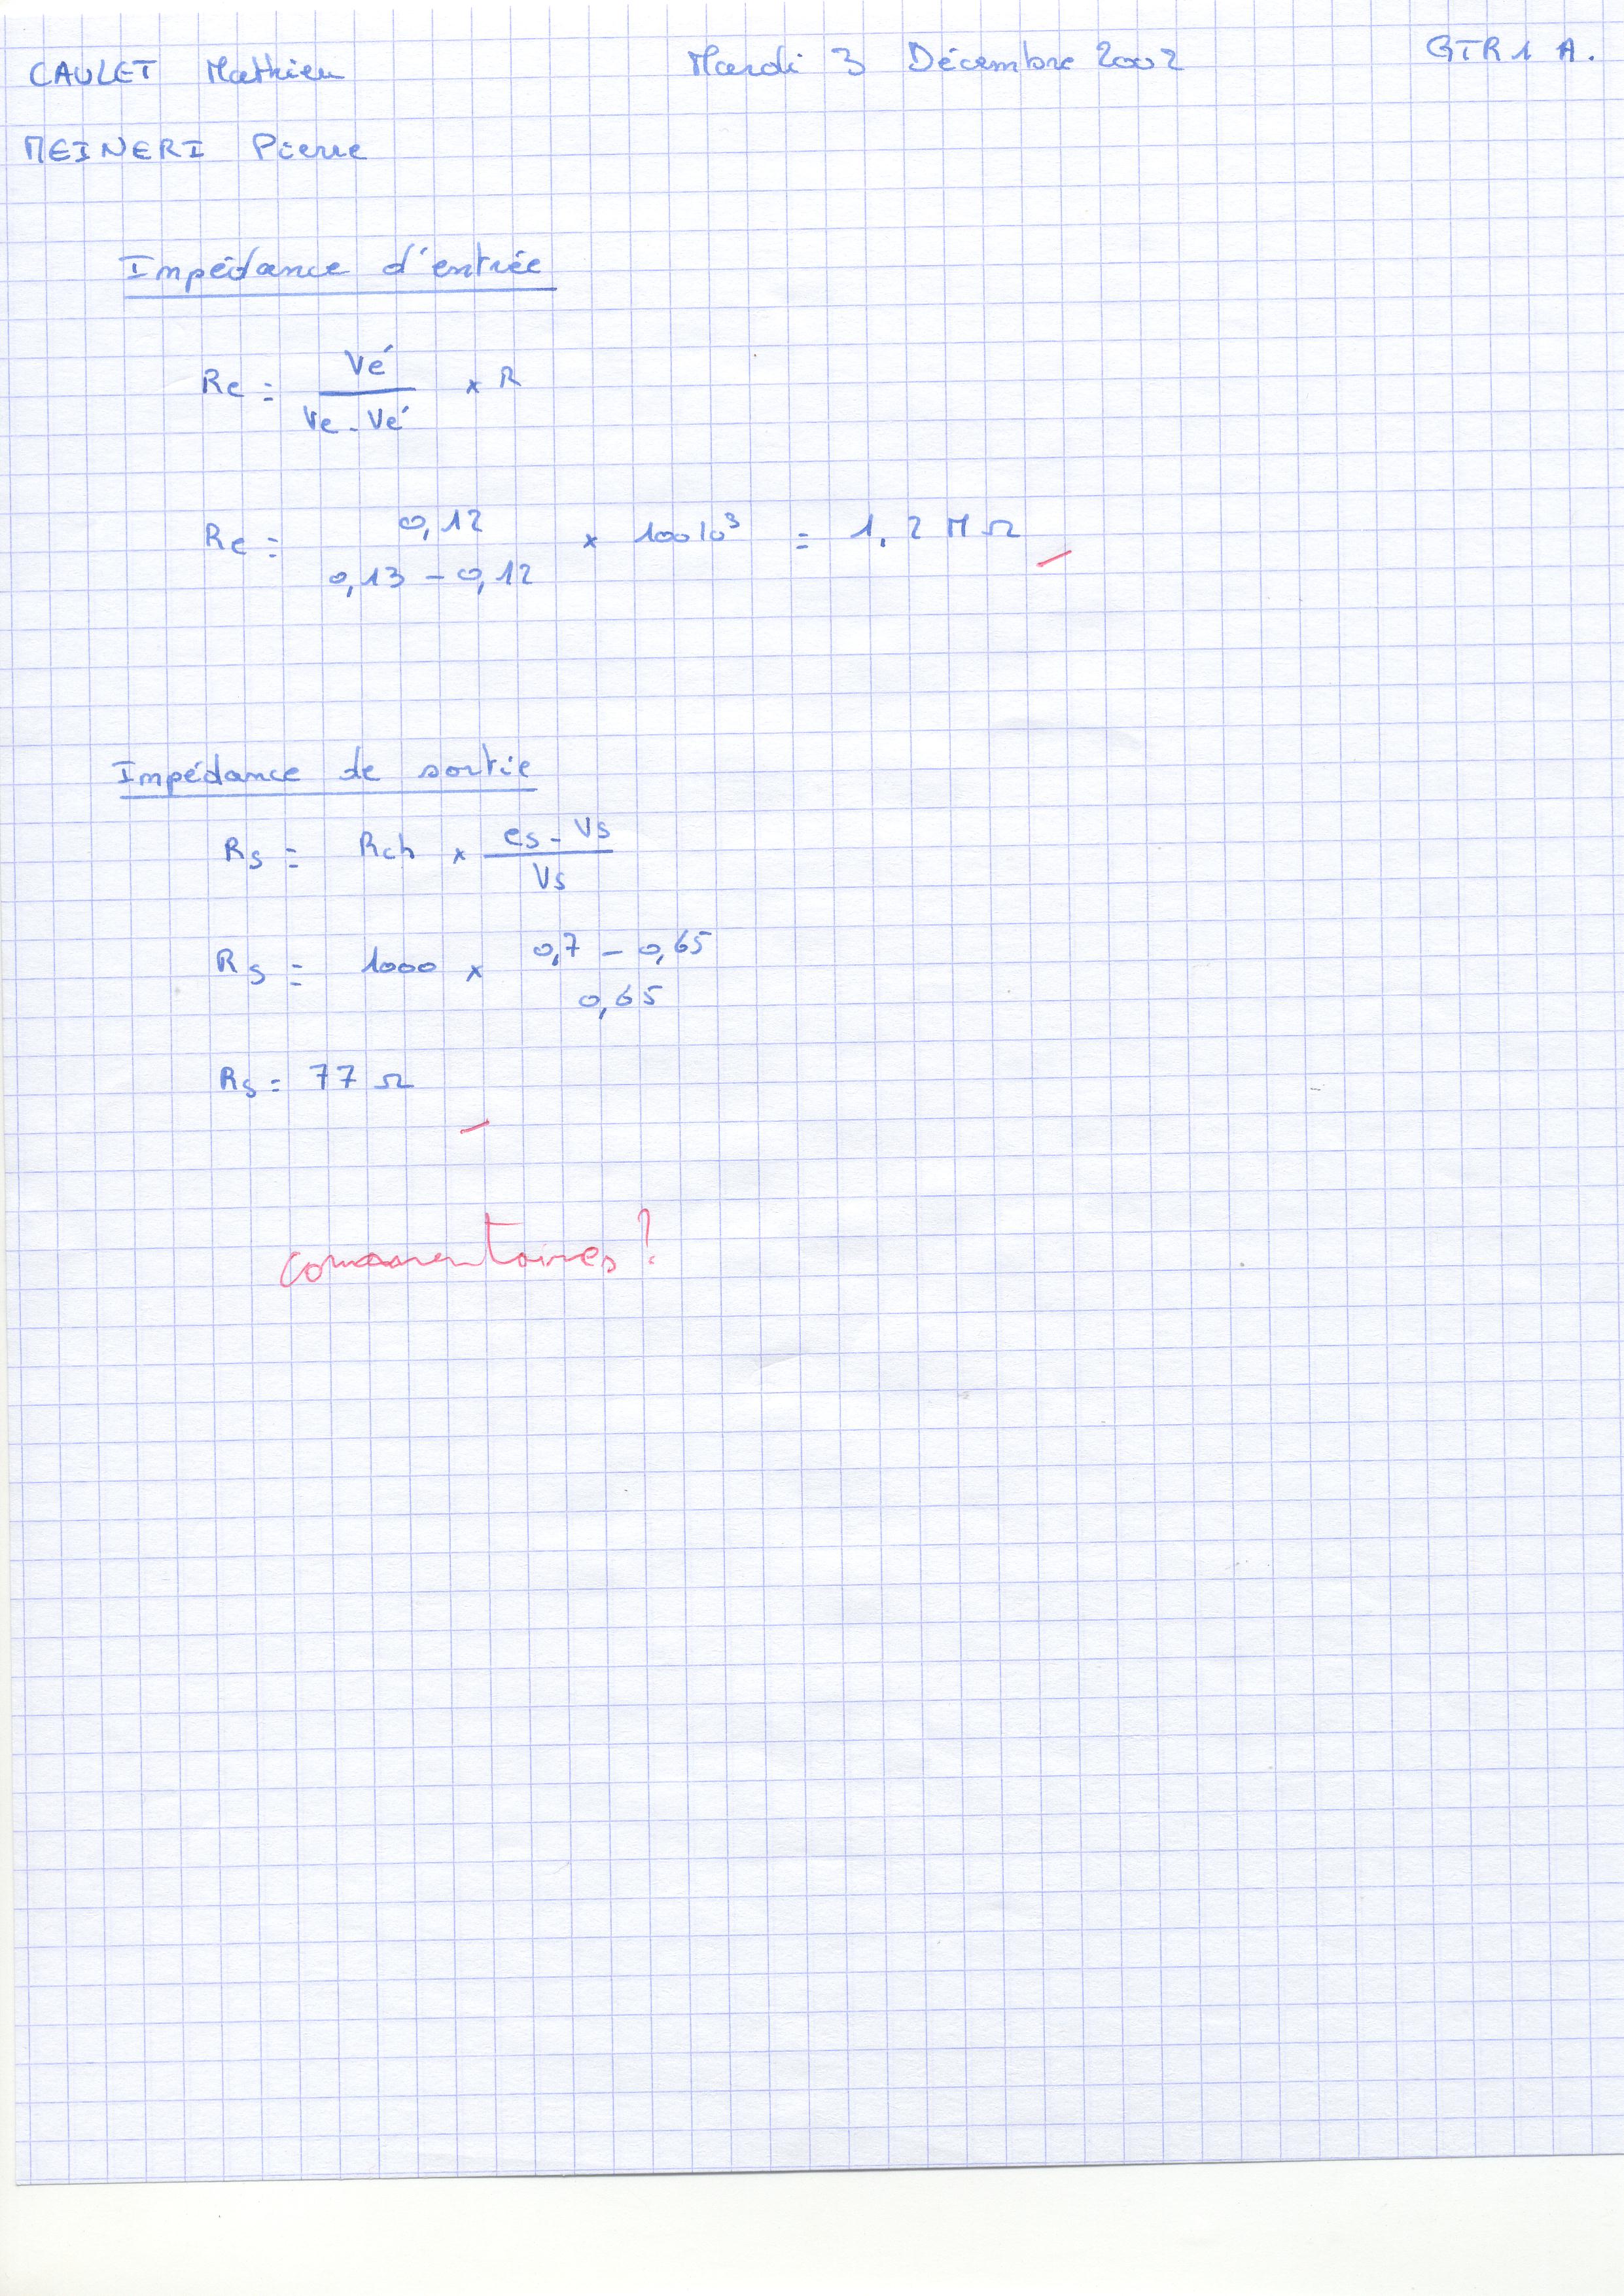 CAULET Mathieu Mardi 3 Décembre 2002 GTR1 A.
MEINERI Pierre
Impédance d'entrée
Re = Ve' / (Ve - Ve') × R
Re = 0,12 / (0,13 - 0,12) × 100 10³ = 1,2 MΩ
Impédance de sortie
Rs = Rch × (es - Vs) / Vs
Rs = 1000 × (0,7 - 0,65) / 0,65
Rs = 77 Ω
commentaires ?